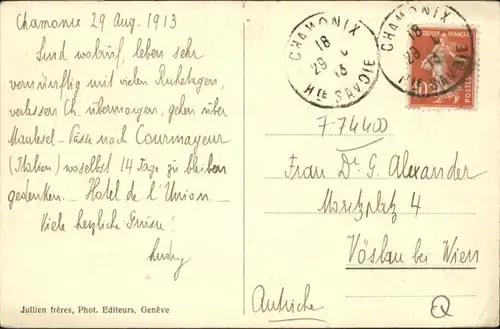 Chamonix 29 Aug. 1913
Sind wohlauf, leben sehr
vernünftig mit vielen Ruhetagen,
verlassen Ch. übermorgen, gehen über
nach Courmayeur
(Italien) woselbst 14 Tage zu bleiben
gedenken. — Hotel de l'Union —
Viele herzliche Grüsse!
Jullien frères, Phot. Editeurs, Genève
CHAMONIX
18
29 8
13
HTE SAVOIE
CHAMONIX
18
29
13
HTE SAVOIE
POSTES
10
7-74400
Frau Dr. G. Alexander
Moritzplatz 4
Vöslau bei Wien
Autriche
Q